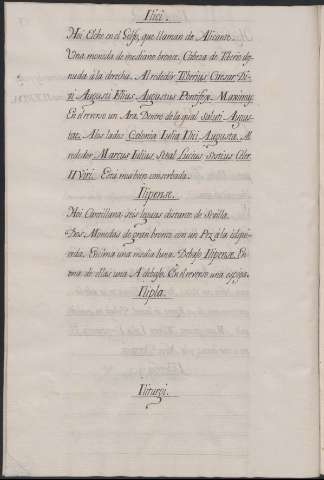 Ilici.
Hoi Elche en el Golfo, que llaman de Alicante.
Una moneda de mediano bronce. Cabeza de Tiberio des-
nuda a la derecha. Al rededor Tiberius Caesar Di-
vi Augusti Filius Augustus Pontifex Maximus
En el reverso un Ara. Dentro de la qual Saluti Augus-
tae. A los lados Colonia Iulia Ilici Augusta. Al
rededor: Marcus Iulius, Setal Lucius Sestius Celer
II Viri. Esta mui bien conserbada.
Ilipense.
Hoi Cantillana seis leguas distante de Sevilla.
Dos Monedas de gran bronce con un Pez a la isquier-
da. Encima una media luna. Debajo Ilipense. En
una de ellas una A debajo. En el reverso una espiga.
Ilipla.
Iliturgi.